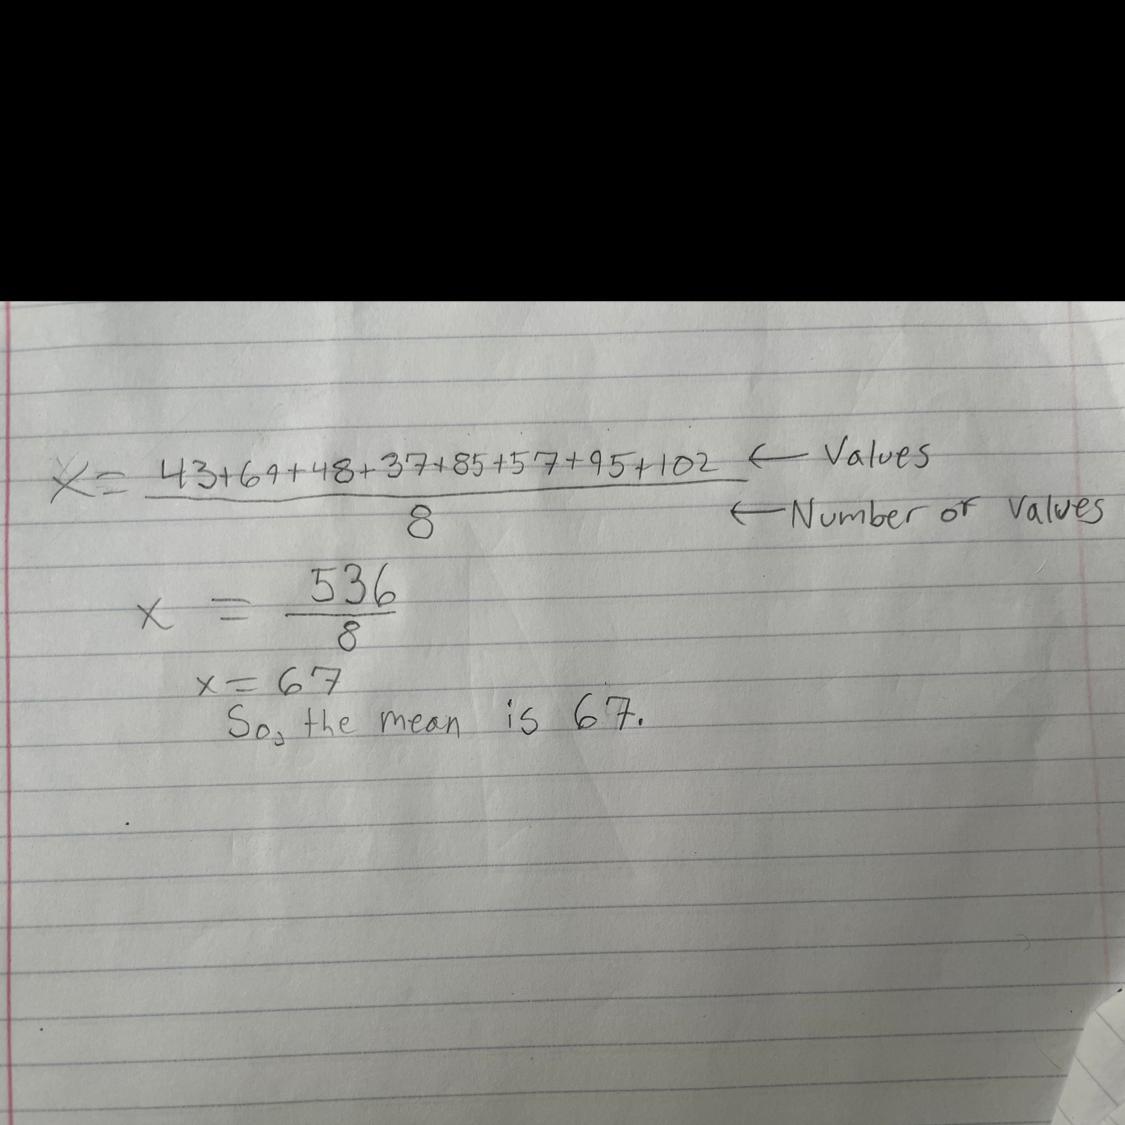 x = 43+69+48+37+85+57+95+102 ← Values
8 ← Number of values
x = 536
8
x = 67
So, the mean is 67.